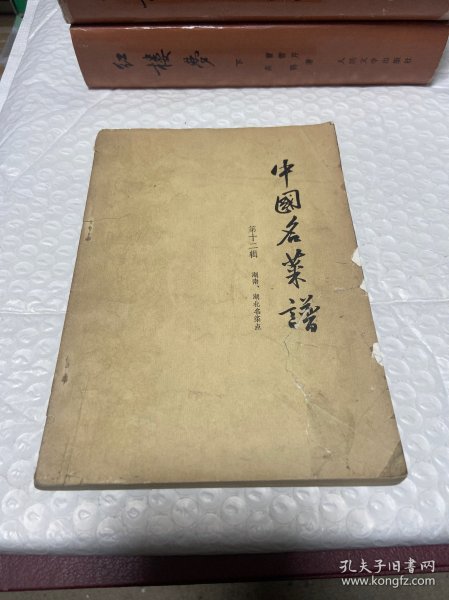 红楼梦
下
曹雪芹
高鹗 著
人民文学出版社
中國名菜譜
第十二辑
湖南、湖北名菜点
孔夫子旧书网
www.kongfz.com